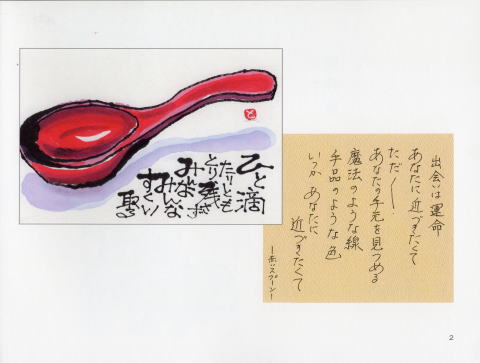 ひと滴
たりとも
とり残さず
みなみんな
すくい
取る
出会いは運命
あなたに近づきたくて
ただ――
あなたの手元を見つめる
魔法のような線
手品のような色
いつか あなたに
近づきたくて
―赤いスプーン―
2